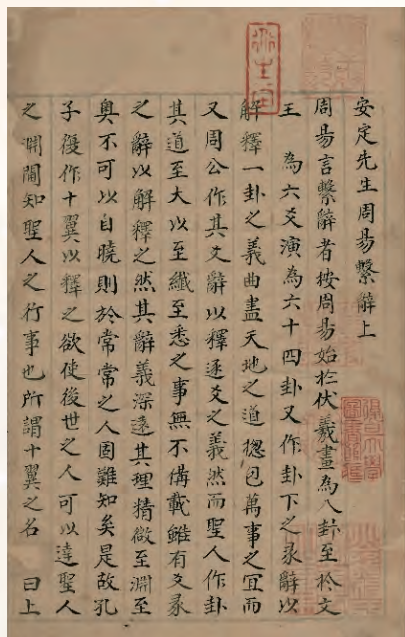 安定先生周易繫辭上
周易言繫辭者按周易始於伏羲畫為八卦至於文
王　為六爻演為六十四卦又作卦下之彖辭以
解釋一卦之義曲盡天地之道揔包萬事之宜而
又周公作其爻辭以釋逐爻之義然而聖人作卦
其道至大以至纎至悉之事無不備載雖有爻彖
之辭以解釋之然其辭義深遠其理精微至淵至
奧不可以自曉則於常常之人固難知矣是故孔
子復作十翼以釋之欲使後世之人可以達聖人
之淵閫知聖人之行事也所謂十翼之名　曰上